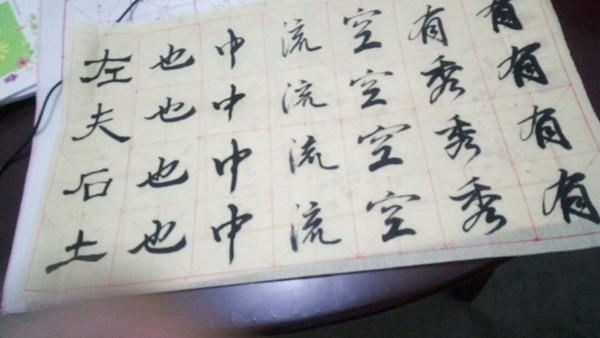 有有有有
有秀秀秀
空空空空
流流流流
中中中中
也也也也
左夫石土